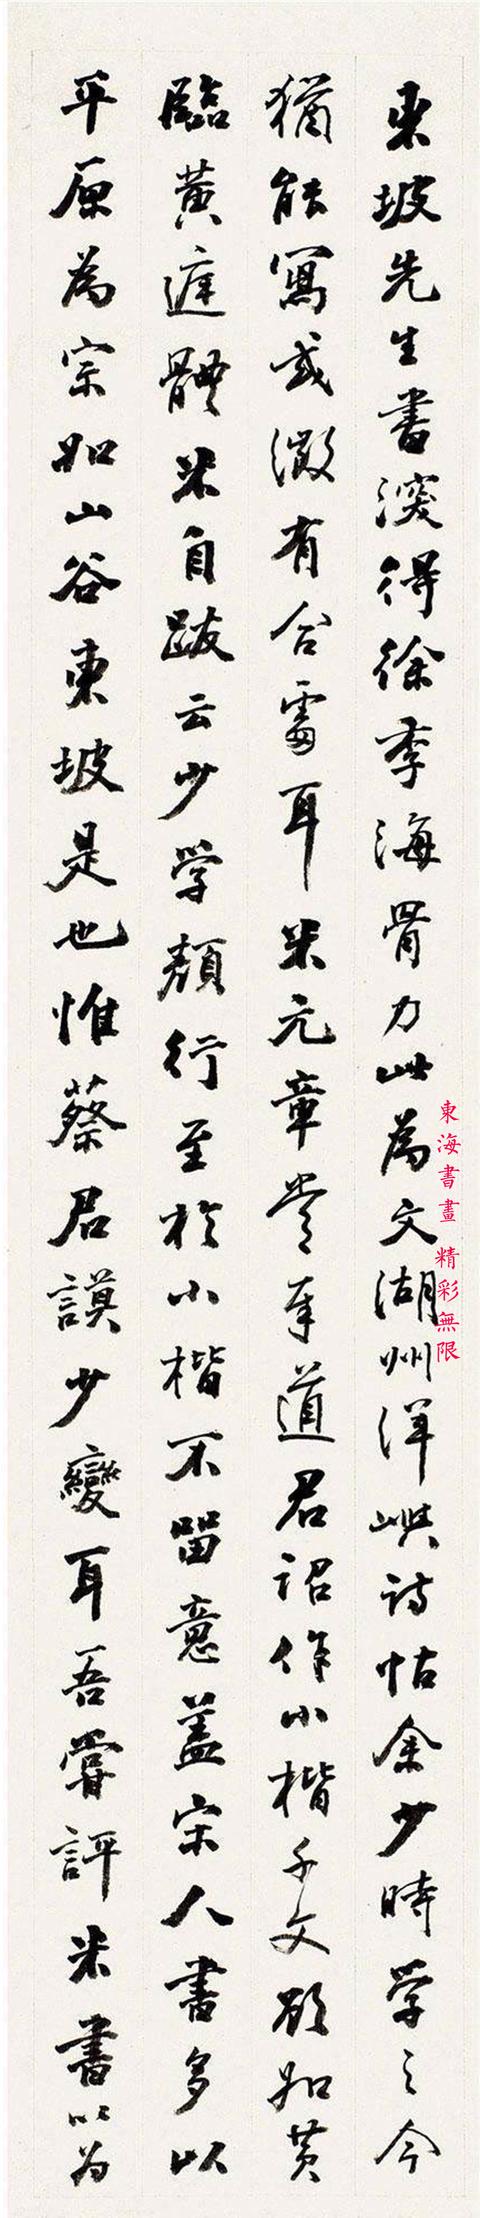 東坡先生書深得徐季海骨力此為文湖州洋嶼詩帖余少時学之今
猶能寫或微有合處耳米元章嘗奉道君詔作小楷千文欲如黄
臨黄庭體米自跋云少学顏行至於小楷不留意盖宋人書多以
平原為宗如山谷東坡是也惟蔡君謨少變耳吾嘗評米書以为
東海書畫 精彩無限